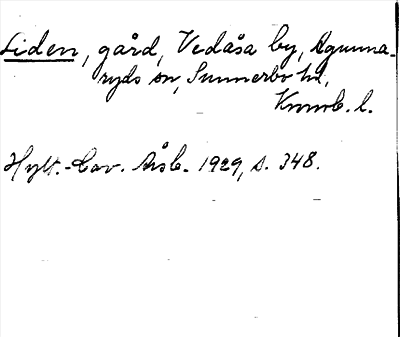 Liden, gård, Vedåsa by, Agunna-
ryds sn, Sunnerbo hd,
Kronob. l.
Hylt.-Cav. Årsb. 1929, s. 348.